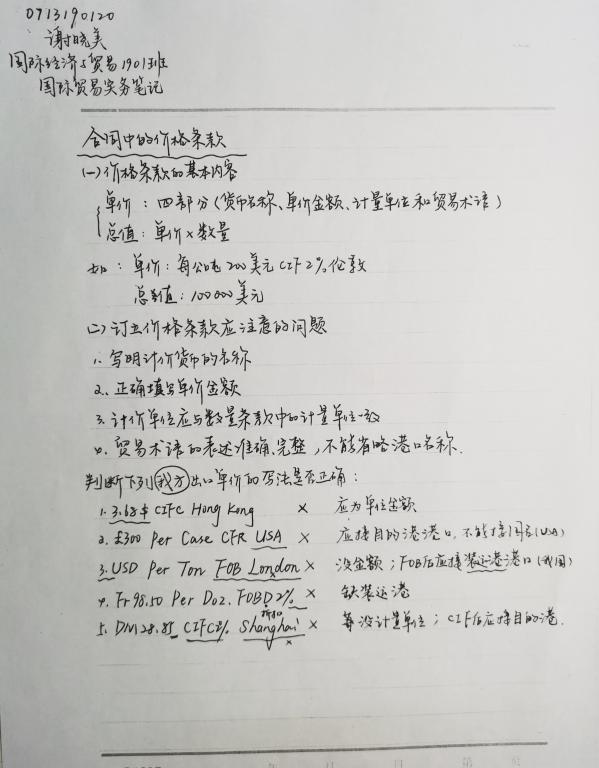 0713190120
谢晓美
国际经济与贸易1901班
国际贸易实务笔记
合同中的价格条款
(一)价格条款的基本内容
单价：四部分(货币名称、单价金额、计量单位和贸易术语)
总值：单价×数量
如：单价：每公吨200美元CIF2%伦敦
总值：100000美元
(二)订立价格条款应注意的问题
1. 写明计价货币的名称
2. 正确填写单价金额
3. 计价单位应与数量条款中的计量单位一致
4. 贸易术语的表述准确、完整，不能省略港口名称.
判断下列我方出口单价的写法是否正确：
1. 3.68$ CIFC Hong Kong × 应为单位金额
2. £300 Per Case CFR USA × 应接目的港港口，不能接国家(USA)
3. USD Per Ton FOB London × 没金额；FOB后应接装运港港口(我国)
4. Fr98.50 Per Doz. FOBD2% × 缺装运港
折扣
5. DM28.85 CIFC2% Shanghai × 没计量单位；CIF后应接目的港.